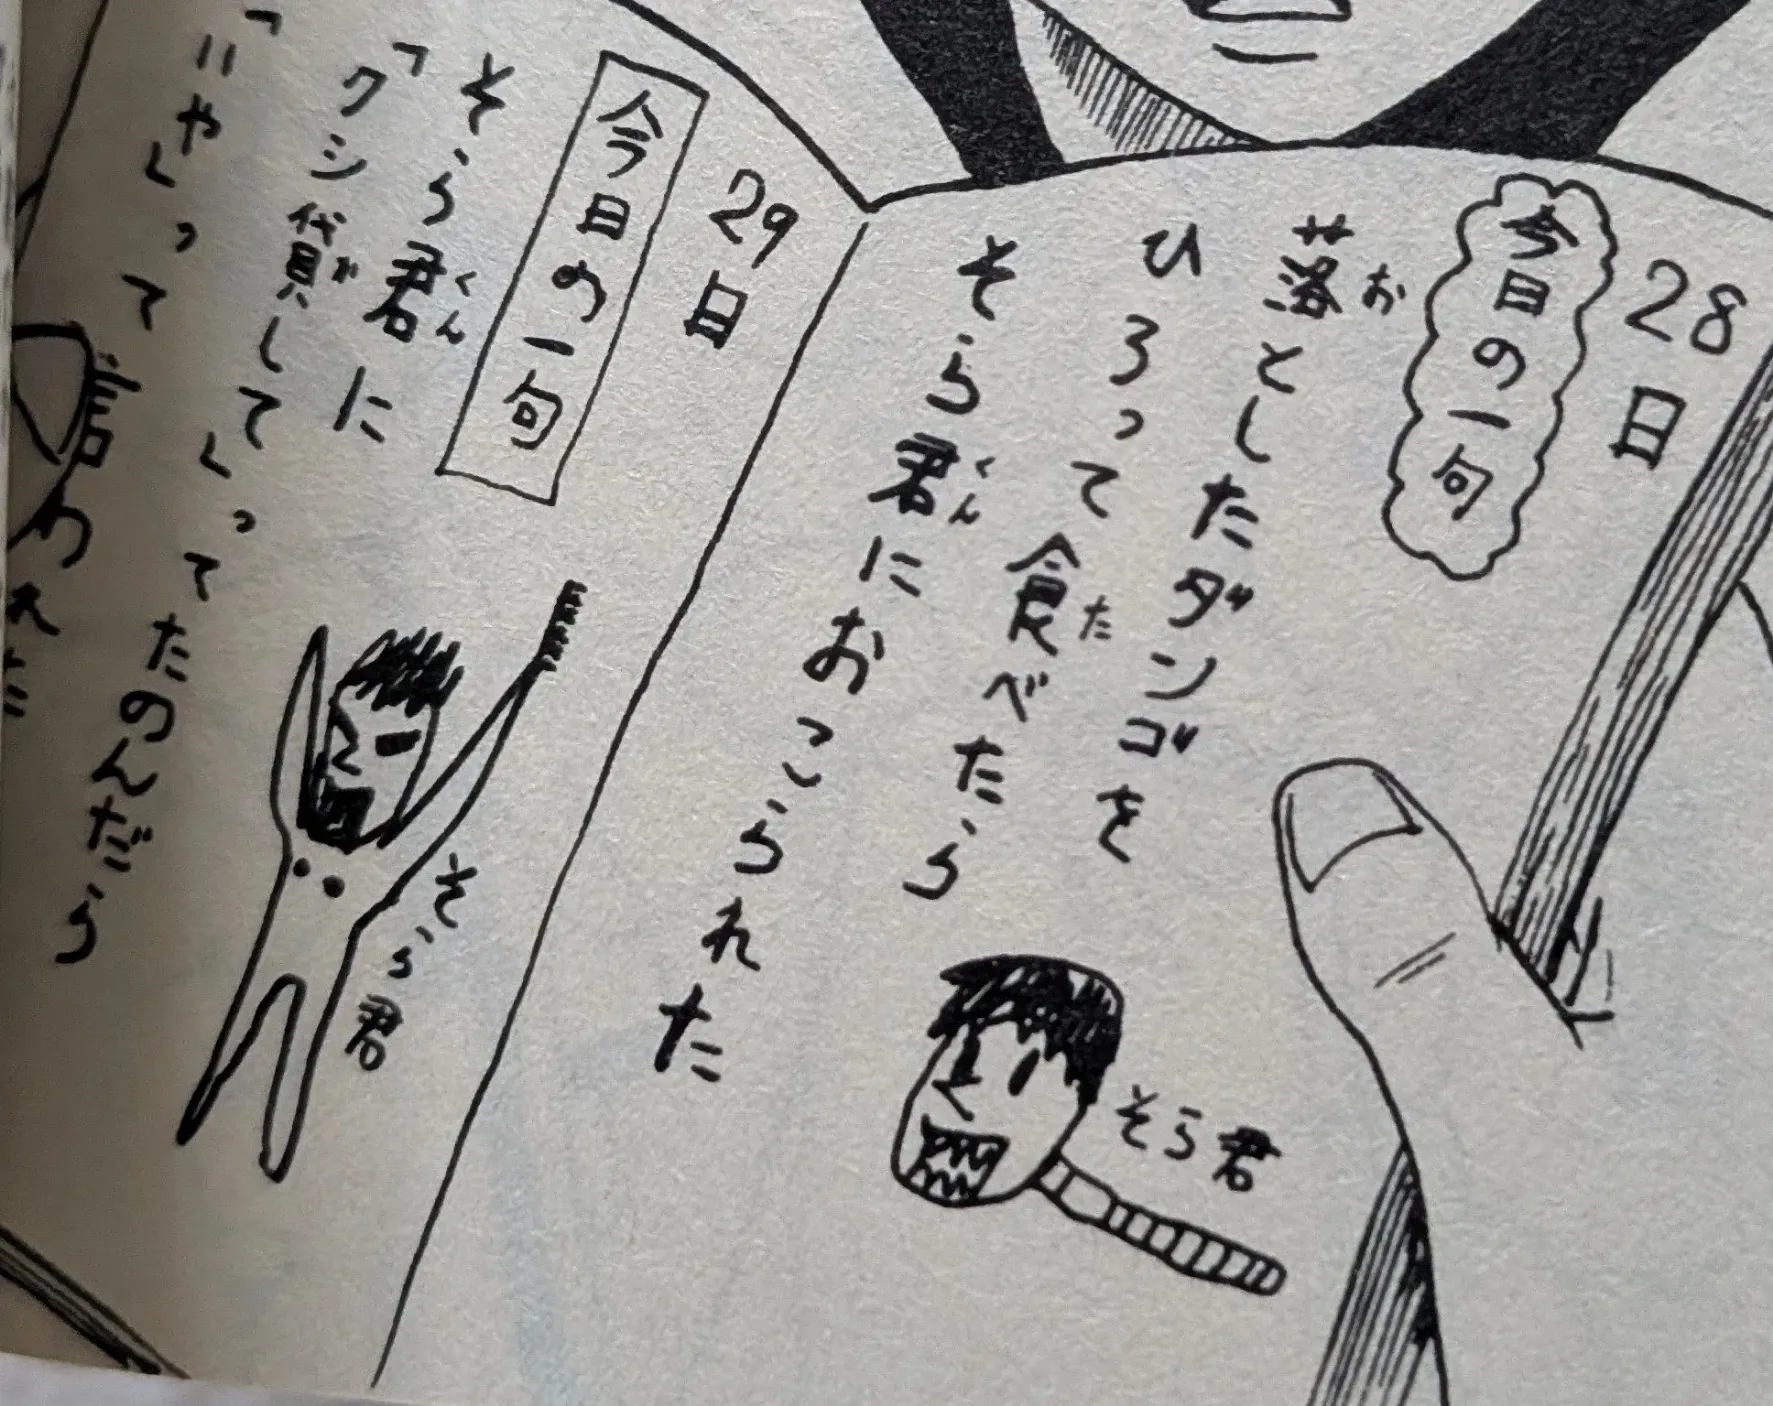 28日
今日の一句
落としたダンゴを
お
ひろって食べたら
た
そら君におこられた
くん
そら君
29日
今日の一句
そら君に
くん
「クシ貸して」ってたのんだら
か
「いや」って言われた
そら君